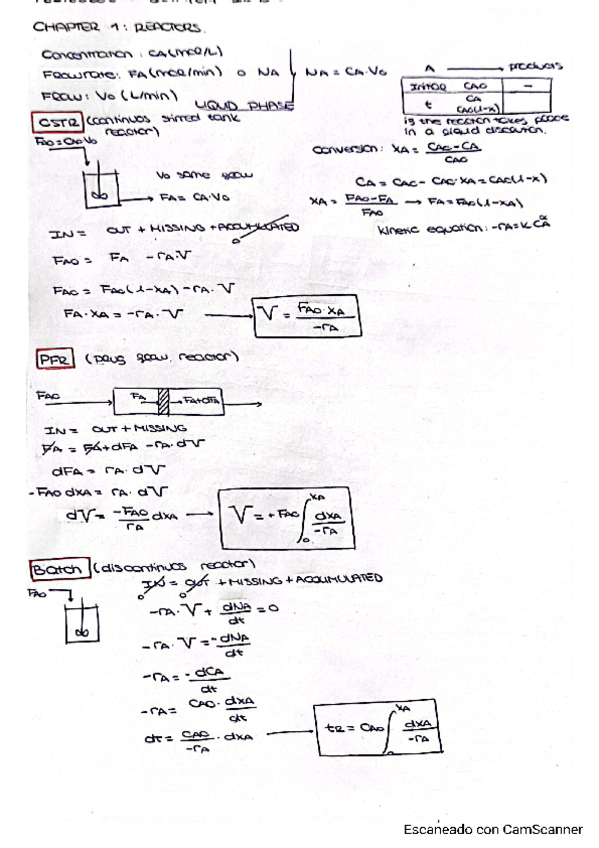 CHAPTER 1: REACTORS.
Concentration: CA(mol/L)
Flowrate: FA(mol/min) o NA
NA = CA·V0
Flow: V0 (L/min)
LIQUID PHASE
A → products
initial CA0 —
t CA
CA0(1-x)
is the reaction takes place
in a liquid
CSTR (continuos stirred tank
reactor)
FA0=CA0·V0
V0 same flow
FA = CA·V0
conversion: XA = CA0 - CA / CA0
CA = CA0 - CA0·XA = CA0(1-x)
XA = FA0 - FA / FA0 → FA = FA0(1-XA)
Kinetic equation: -rA = K·CA^α
IN = OUT + MISSING + ACCUMULATED
0
FA0 = FA -rA·V
FA0 = FA0(1-XA) - rA·V
FA·XA = -rA·V → V = FA0·XA / -rA
PFR (plug flow reactor)
FA0
FA → FA+dFA
IN = OUT + MISSING
FA = FA + dFA - rA·dV
dFA = rA·dV
-FA0 dXA = rA·dV
dV = -FA0 / rA dXA → V = +FA0 ∫0^XA dXA / -rA
Batch (discontinuos reactor)
FA0
IN = OUT + MISSING + ACCUMULATED
0 0
-rA·V + dNA / dt = 0
-rA·V = -dNA / dt
-rA = -dCA / dt
-rA = CA0·dXA / dt
dt = CA0 / -rA · dXA → tR = CA0 ∫0^XA dXA / -rA
Escaneado con CamScanner